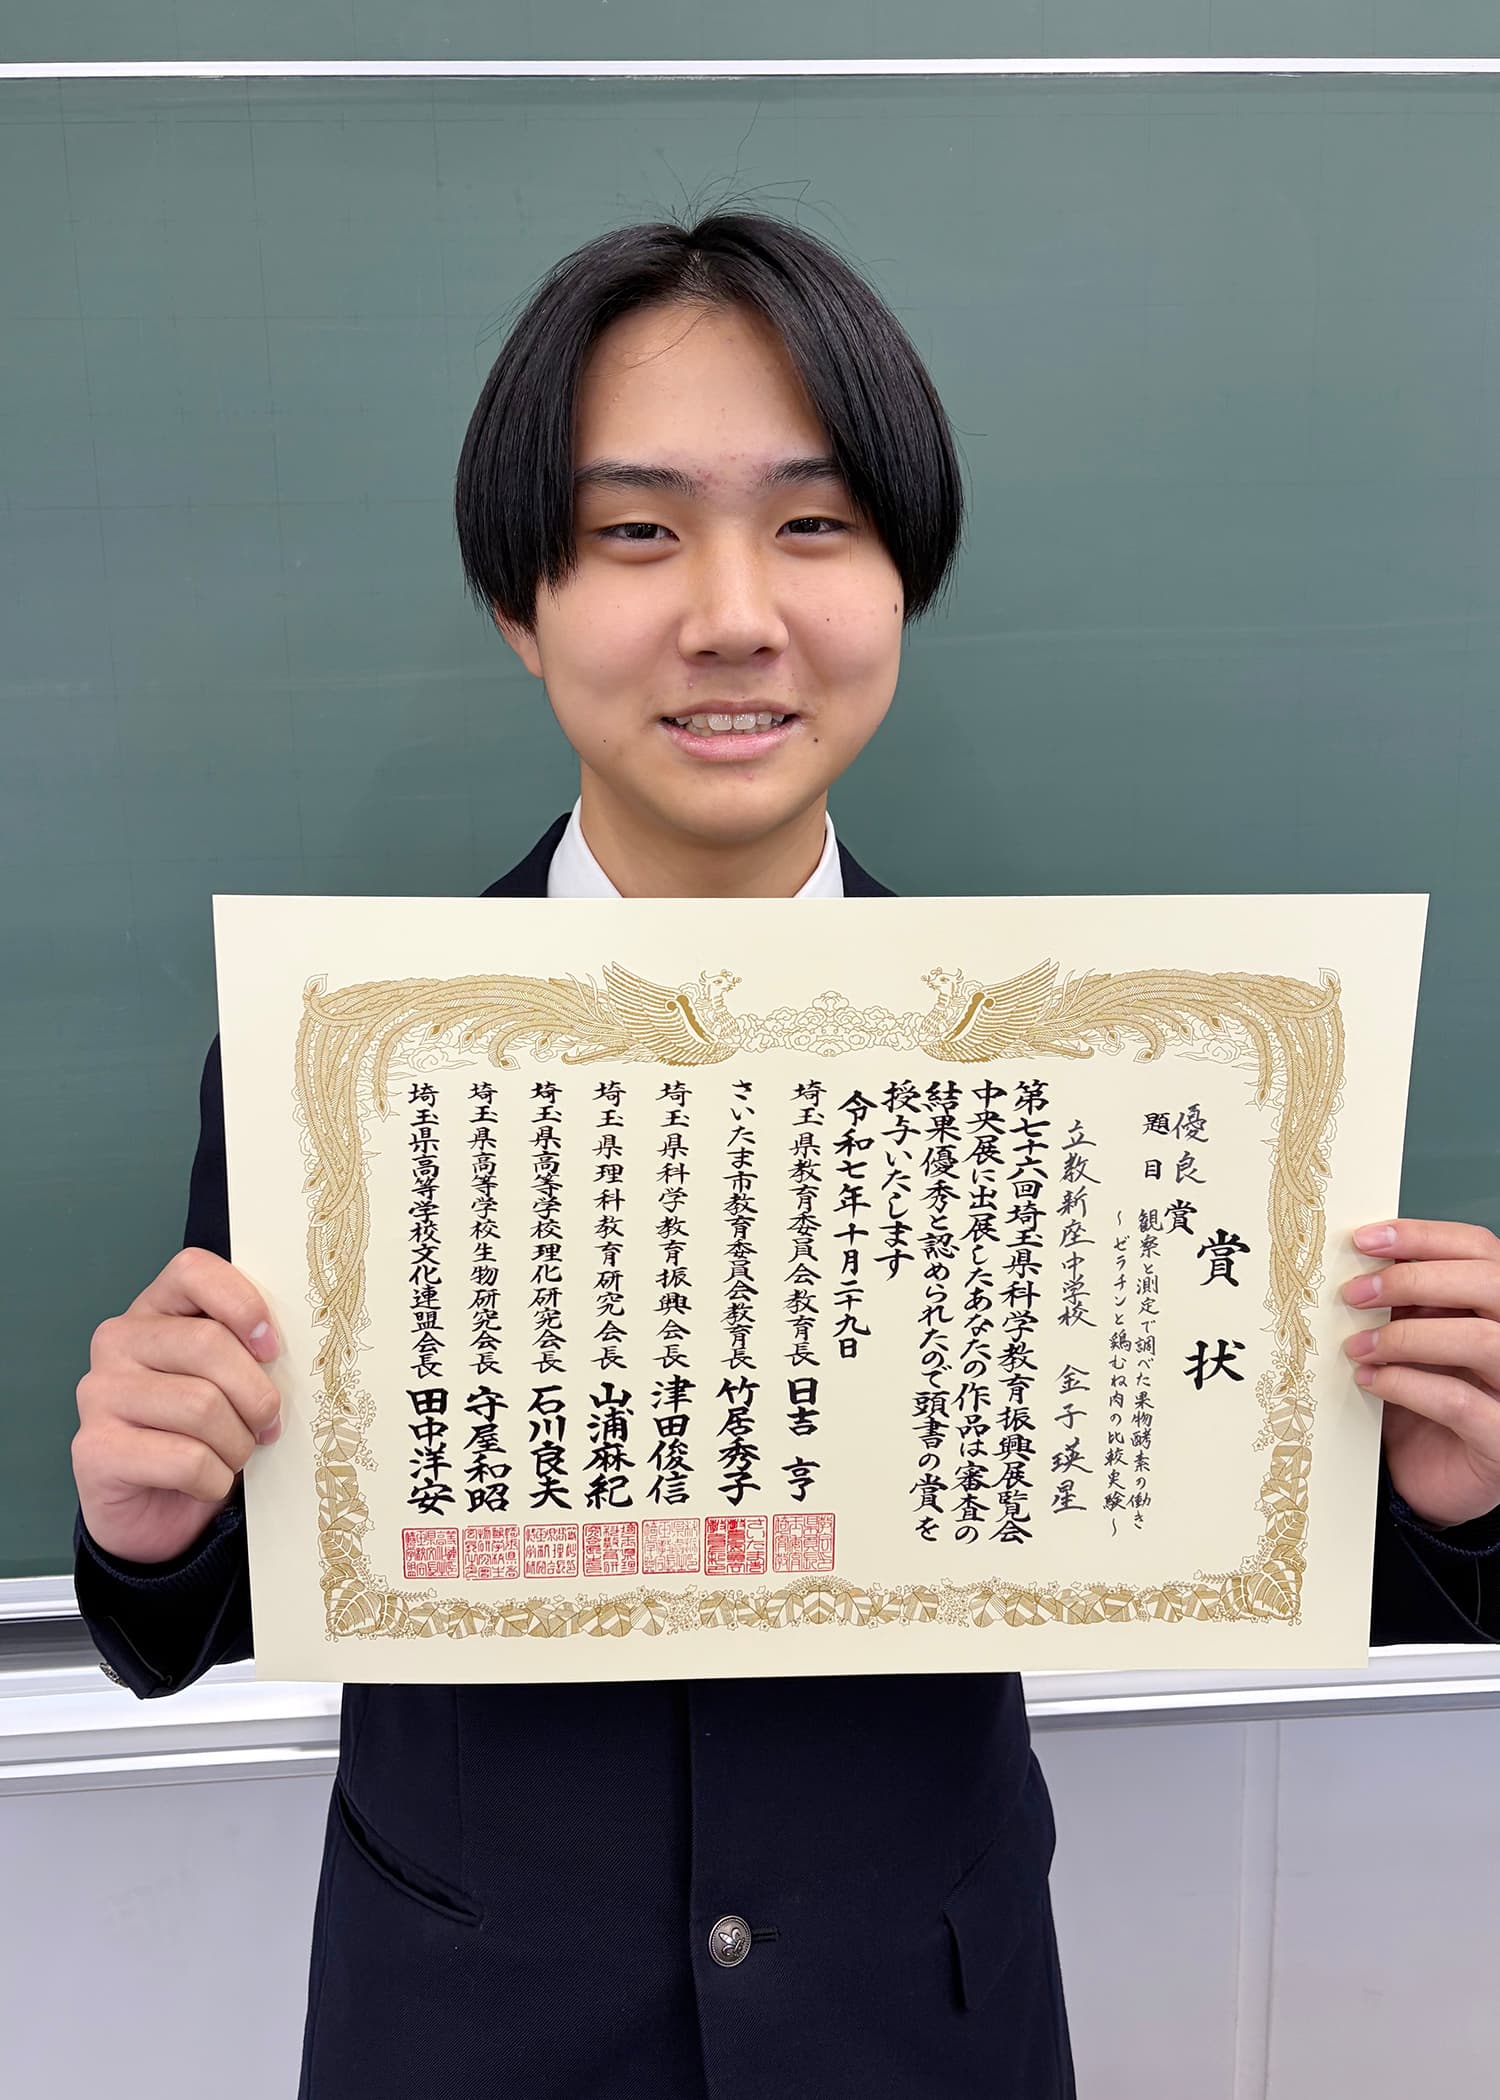 賞状
優良賞
題目 観察と測定で調べた果物酵素の働き
~ゼラチンと鶏むね肉の比較実験~
立教新座中学校 金子瑛星
第七十六回埼玉県科学教育振興展覧会
中央展に出展したあなたの作品は審査の
結果優秀と認められたので頭書の賞を
授与いたします
令和七年十月二十九日
埼玉県教育委員会教育長 日吉亨
さいたま市教育委員会教育長 竹居秀子
埼玉県科学教育振興会長 津田俊信
埼玉県理科教育研究会長 山浦麻紀
埼玉県高等学校理化研究会長 石川良夫
埼玉県高等学校生物研究会長 守屋和昭
埼玉県高等学校文化連盟会長 田中洋安